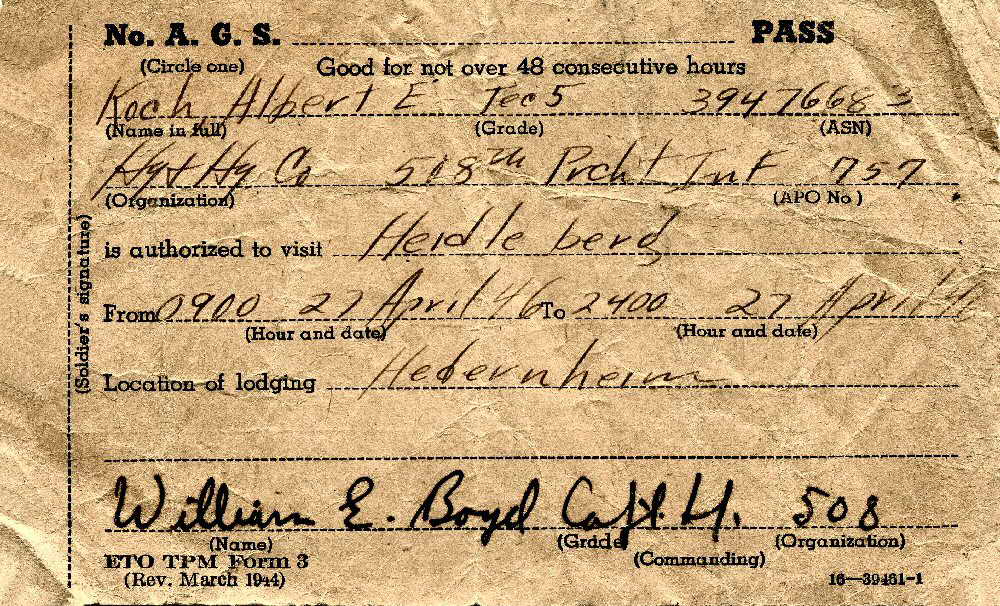 No. A. G. S. PASS
(Circle one) Good for not over 48 consecutive hours
Koch, Albert E Tec 5 39476683
(Name in full) (Grade) (ASN)
Hq + Hq Co 508th Prcht Inf 757
(Organization) (APO No)
is authorized to visit Heidle berg
From 0900 27 April 46 To 2400 27 April 46
(Hour and date) (Hour and date)
Location of lodging Hedernheim
(Soldier's signature)
William E. Boyd Capt. 508
(Name) (Grade) (Organization)
(Commanding)
ETO TPM Form 3
(Rev. March 1944) 16—39461-1